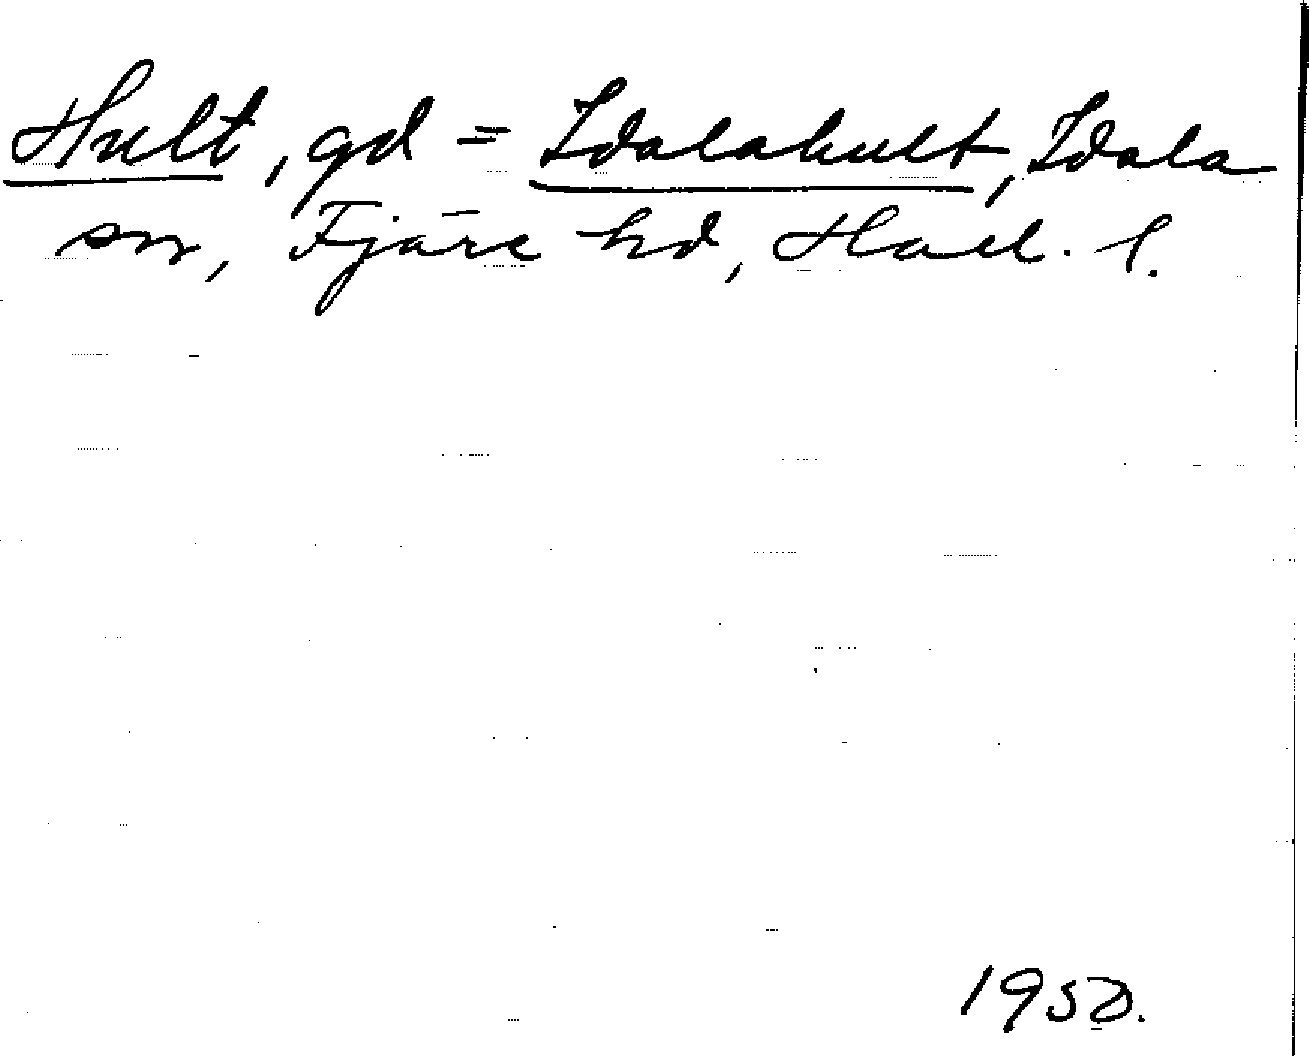 Hult, gd = Idalahult, Idala
sn, Fjäre hd, Hall. l.
1950.